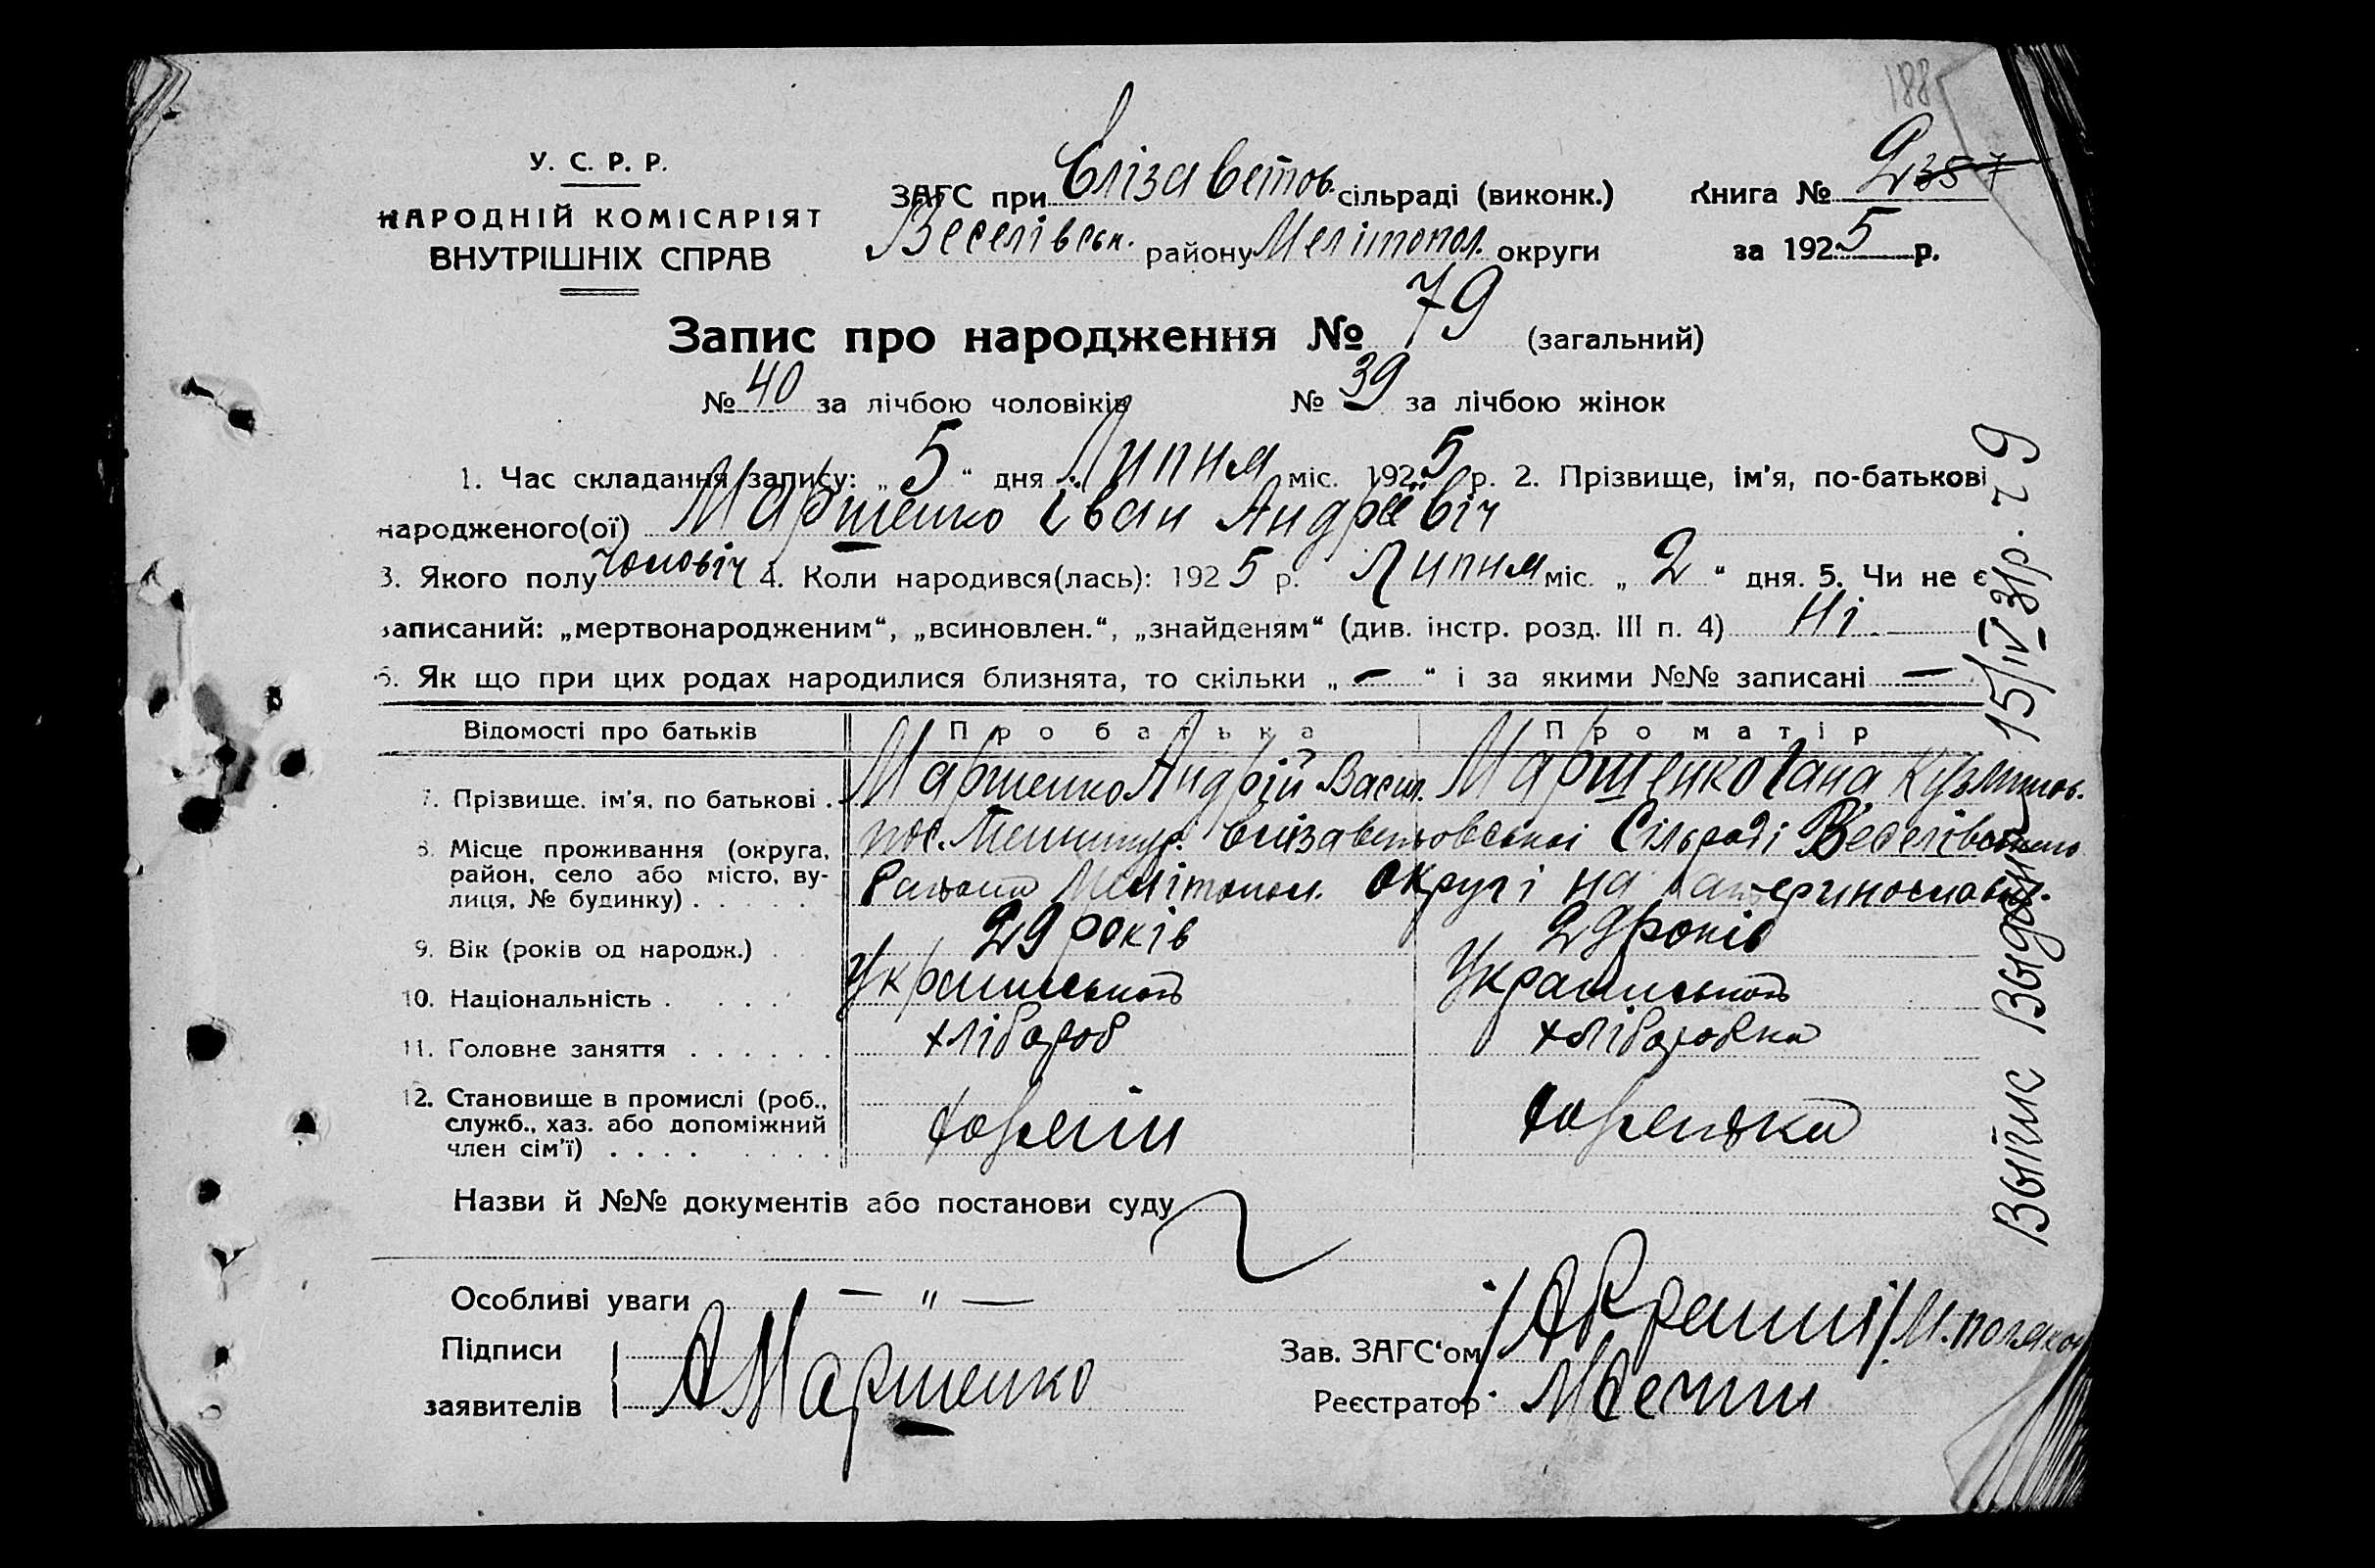 188
У. С. Р. Р.
НАРОДНІЙ КОМІСАРІЯТ
ВНУТРІШНІХ СПРАВ
ЗАГС при Єлізаветов. сільраді (виконк.)
Веселівськ. району Мелітопол. округи
Книга № 2 357
за 1925 р.
Запис про народження № 79 (загальний)
№ 40 за лічбою чоловіків № 39 за лічбою жінок
1. Час складання запису: „5“ дня Липня міс. 1925 р. 2. Прізвище, ім'я, по-батькові
народженого(ої) Маршенко Іван Андрієвіч
3. Якого полу чоловіч 4. Коли народився(лась): 1925 р. Липня міс. „2“ дня. 5. Чи не є
записаний: „мертвонародженим“, „всиновлен.“, „знайденям“ (див. інстр. розд. III п. 4) Ні
6. Як що при цих родах народилися близнята, то скільки „—“ і за якими №№ записані —
Відомості про батьків Про батька Про матір
7. Прізвище, ім'я, по батькові . Маршенко Андрій Васил. Маршенко Гана Кузьмінов.
8. Місце проживання (округа, район, село або місто, вулиця, № будинку) . . . . . пос. Єлізаветовської Сільраді Веселівського
района Мелітопол. округі на Катеринославщ.
9. Вік (років од народж.) . . 29 років 29 років
10. Національність . . . . Украинськой Украинськой
11. Головне заняття . . . . . . хлібороб хлібаробка
12. Становище в промислі (роб., служб., хаз. або допоміжний член сім'ї) . . . . . . . .
Назви й №№ документів або постанови суду
Особливі уваги — „ —
Підписи
заявителів
АМаршенко
Зав. ЗАГС'ом
Реєстратор
Выпис Выдан 15/IV 31р. ч 9